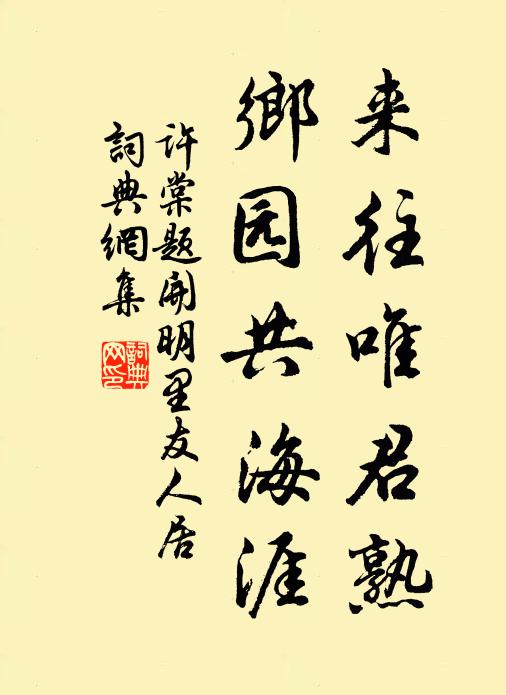 来往唯君熟
鄉园共海涯
許棠题開明里友人居
詞典網集
詞典
网印